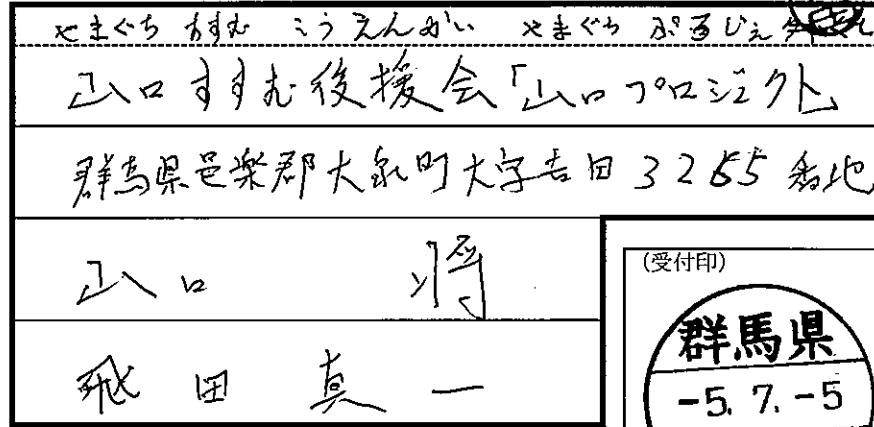 やまぐち すすむ こうえんかい やまぐち ぷろじぇ
山口すすむ後援会「山口プロジェクト」
群馬県邑楽郡大泉町大字吉田3265番地
山口 将
飛田 真一
(受付印)
群馬県
-5.7.-5